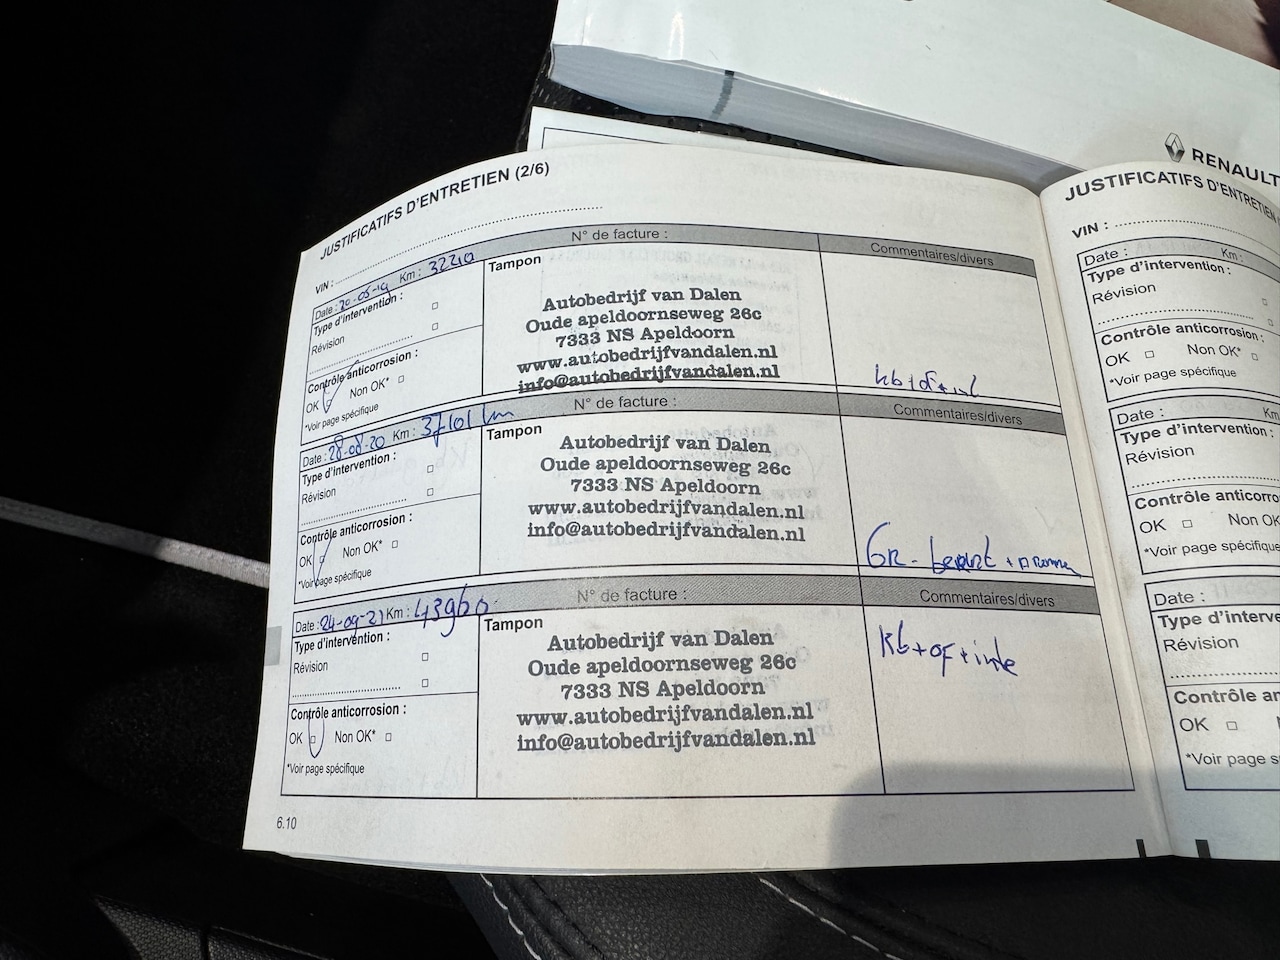 RENAULT
JUSTIFICATIFS D'ENTRETIEN (2/6)
VIN :
Date : 20-05-19 Km : 32210 N° de facture : Commentaires/divers
Type d'intervention :
Révision
Contrôle anticorrosion :
OK Non OK*
*Voir page spécifique
Tampon
Autobedrijf van Dalen
Oude apeldoornseweg 26c
7333 NS Apeldoorn
www.autobedrijfvandalen.nl
info@autobedrijfvandalen.nl
Date : 28-08-20 Km : 37101 km N° de facture : Commentaires/divers
Type d'intervention :
Révision
Contrôle anticorrosion :
OK Non OK*
*Voir page spécifique
Tampon
Autobedrijf van Dalen
Oude apeldoornseweg 26c
7333 NS Apeldoorn
www.autobedrijfvandalen.nl
info@autobedrijfvandalen.nl
GR-
Date : 24-09-21 Km : 43960 N° de facture : Commentaires/divers
Type d'intervention :
Révision
Contrôle anticorrosion :
OK Non OK*
*Voir page spécifique
Tampon
Autobedrijf van Dalen
Oude apeldoornseweg 26c
7333 NS Apeldoorn
www.autobedrijfvandalen.nl
info@autobedrijfvandalen.nl
Kb+of+inte
6.10
JUSTIFICATIFS D'ENTRETIEN
VIN :
Date : Km :
Type d'intervention :
Révision
Contrôle anticorrosion :
OK Non OK*
*Voir page spécifique
Date : Km
Type d'intervention :
Révision
Contrôle anticorro
OK Non OK
*Voir page spécifique
Date :
Type d'interve
Révision
Contrôle an
OK
*Voir page s